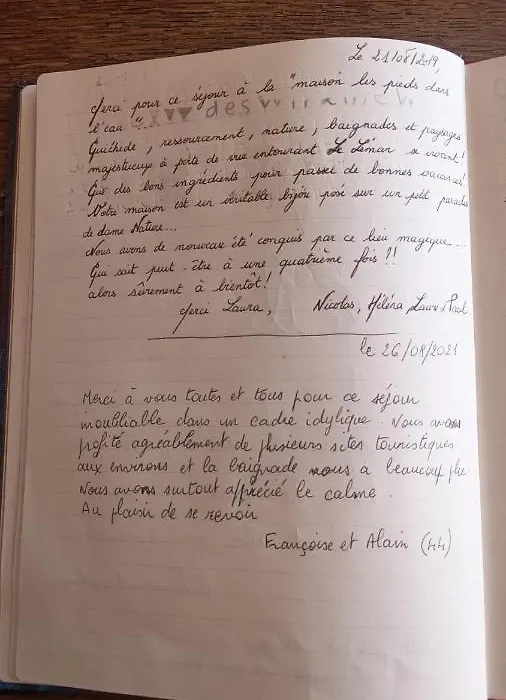 Le 21/08/2019
Merci pour ce séjour à la "maison les pieds dans
l'eau"
Quiétude, ressourcement, nature, baignades et paysages
majestueux à perte de vue entourant Le Léman se vivant!
Que des bons ingrédients pour passer de bonnes vacances!
Votre maison est un véritable bijou posé sur un petit paradis
de dame Nature...
Nous avons de nouveau été conquis par ce lieu magique...
Qui sait peut-être à une quatrième fois !!
alors sûrement à bientôt!
Merci Laura, Nicolas, Héléna, Laure, Paul
le 26/08/2021
Merci à vous toutes et tous pour ce séjour
inoubliable dans un cadre idylique. Nous avons
profité agréablement de plusieurs sites touristiques
aux environs et la baignade nous a beaucoup plu
Nous avons surtout apprécié le calme.
Au plaisir de se revoir
Françoise et Alain (44)